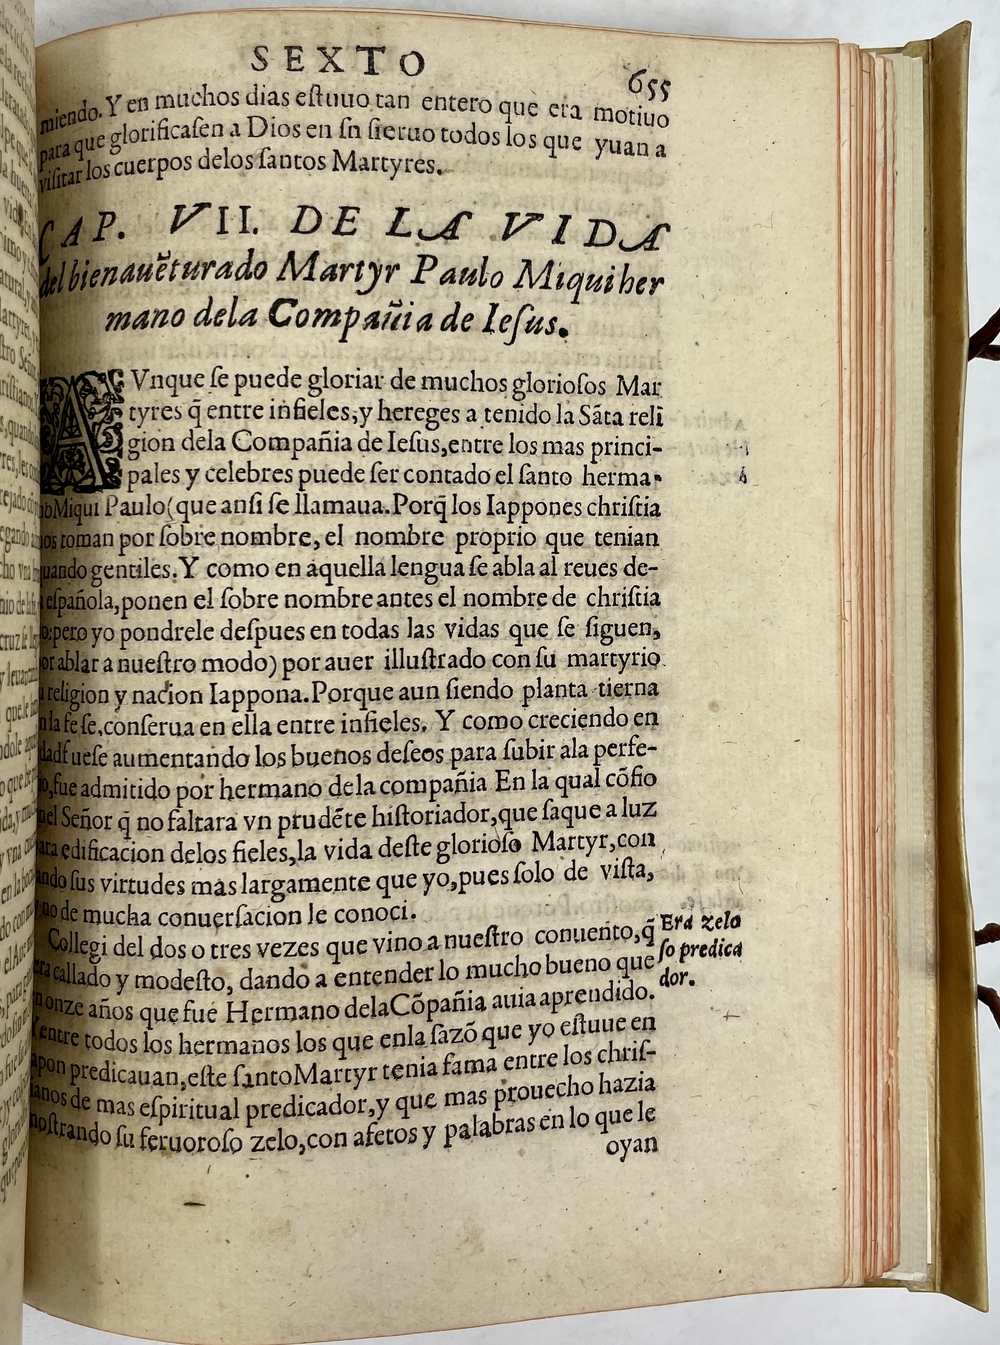 SEXTO
655
miendo. Y en muchos dias eſtuuo tan entero que era motiuo
para que glorificaſen a Dios en ſn ſieruo todos los que yuan a
viſitar los cuerpos delos ſantos Martyres.
CAP. VII. DE LA VIDA
del bienauẽturado Martyr Paulo Miqui her
mano dela Compañia de Ieſus.
AVnque ſe puede gloriar de muchos glorioſos Mar
tyres q̃ entre infieles, y hereges a tenido la Sãta reli
gion dela Compañia de Ieſus, entre los mas princi-
pales y celebres puede ſer contado el ſanto herma-
Miqui Paulo (que anſi ſe llamaua. Porq̃ los Iappones chriſtia
nos toman por ſobre nombre, el nombre proprio que tenian
uando gentiles. Y como en aquella lengua ſe abla al reues de-
eſpañola, ponen el ſobre nombre antes el nombre de chriſtia
o: pero yo pondrele deſpues en todas las vidas que ſe ſiguen,
or ablar a nueſtro modo) por auer illuſtrado con ſu martyrio
religion y nacion Iappona. Porque aun ſiendo planta tierna
n la fe ſe, conſerua en ella entre infieles. Y como creciendo en
dad fueſe aumentando los buenos deſeos para ſubir ala perfe-
o, fue admitido por hermano dela compañia En la qual cõfio
nel Señor q̃ no faltara vn prudẽte hiſtoriador, que ſaque a luz
ara edificacion delos fieles, la vida deſte glorioſo Martyr, con
ando ſus virtudes mas largamente que yo, pues ſolo de viſta,
no de mucha conuerſacion le conoci.
Collegi del dos o tres vezes que vino a nueſtro conuento, q̃
era callado y modeſto, dando a entender lo mucho bueno que
n onze años que fue Hermano dela Cõpañia auia aprendido.
Y entre todos los hermanos los que enla ſazõ que yo eſtuue en
apon predicauan, eſte ſanto Martyr tenia fama entre los chriſ-
ianos de mas eſpiritual predicador, y que mas prouecho hazia
moſtrando ſu feruoroſo zelo, con afetos y palabras en lo que le
oyan
Era zelo
ſo predica
dor.